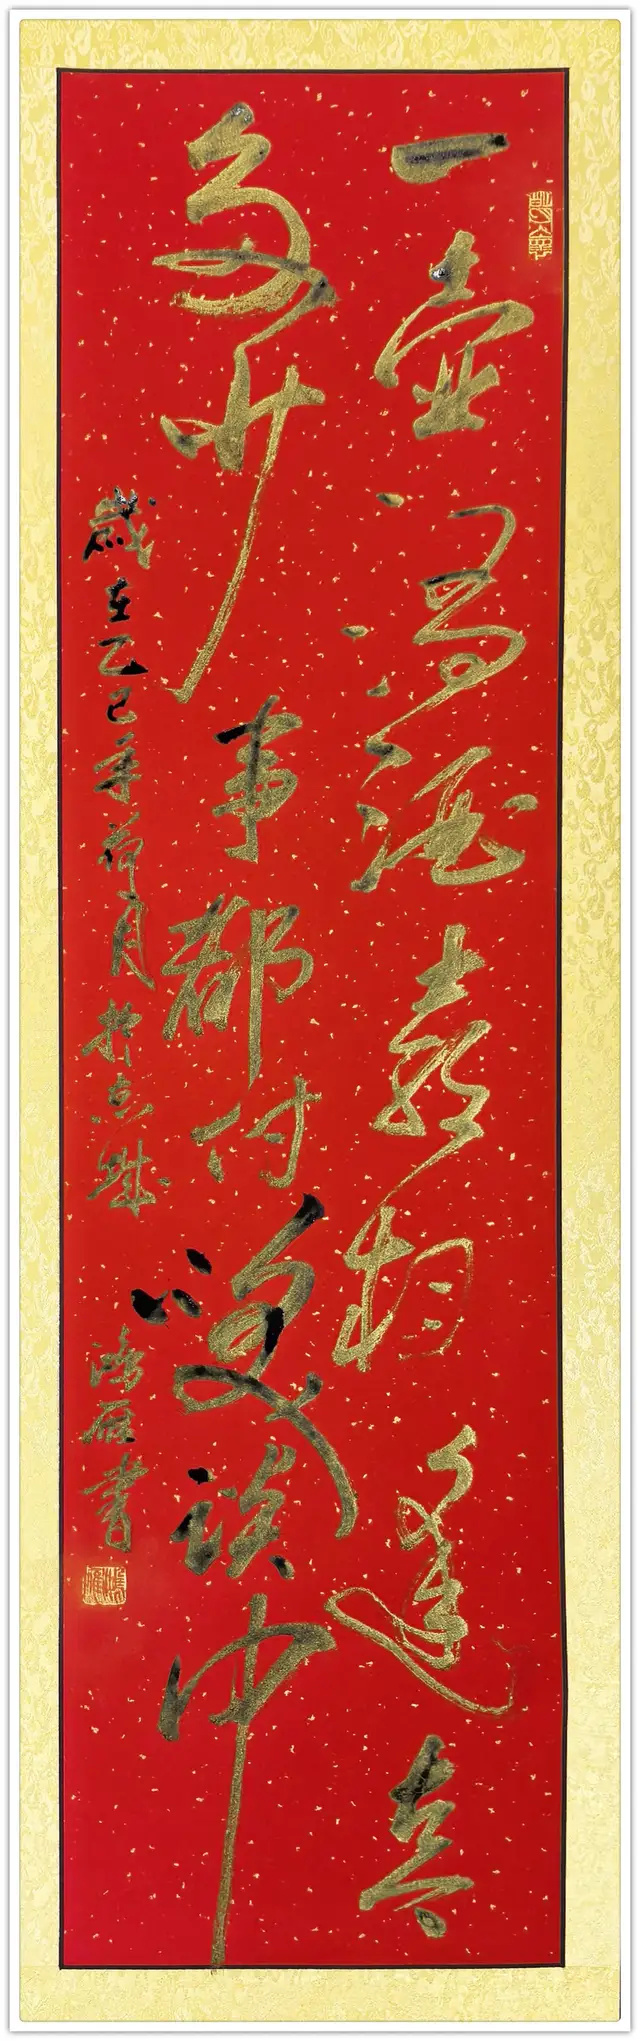 一壶浊酒喜相逢古今
多少事都付笑谈中
岁在乙巳年荷月于京城 鸿雁书